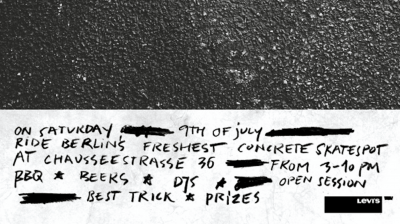 ON SATURDAY 9TH OF july
RIDE BERLINS FRESHEST CONCRETE SKATESPOT
AT CHAUSSEESTRASSE 36 FROM 3-10 PM
BBQ * BEERS * DJS * OPEN SESSION
BEST TRICK * PRIZES
LEVI'S